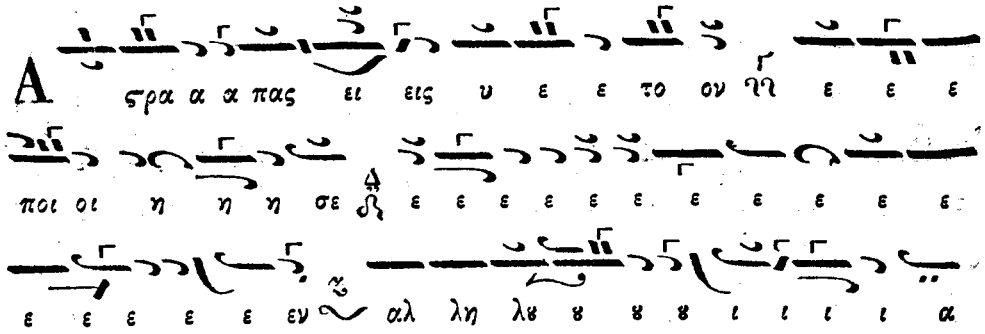 Α ϛρα α α πας ει εις υ ε ε το ον ε ε ε
ποι οι η η η σε ε ε ε ε ε ε ε ε ε ε
ε ε ε ε ε εν αλ λη λȣ ȣ ȣ ȣ ι ι ι ι α